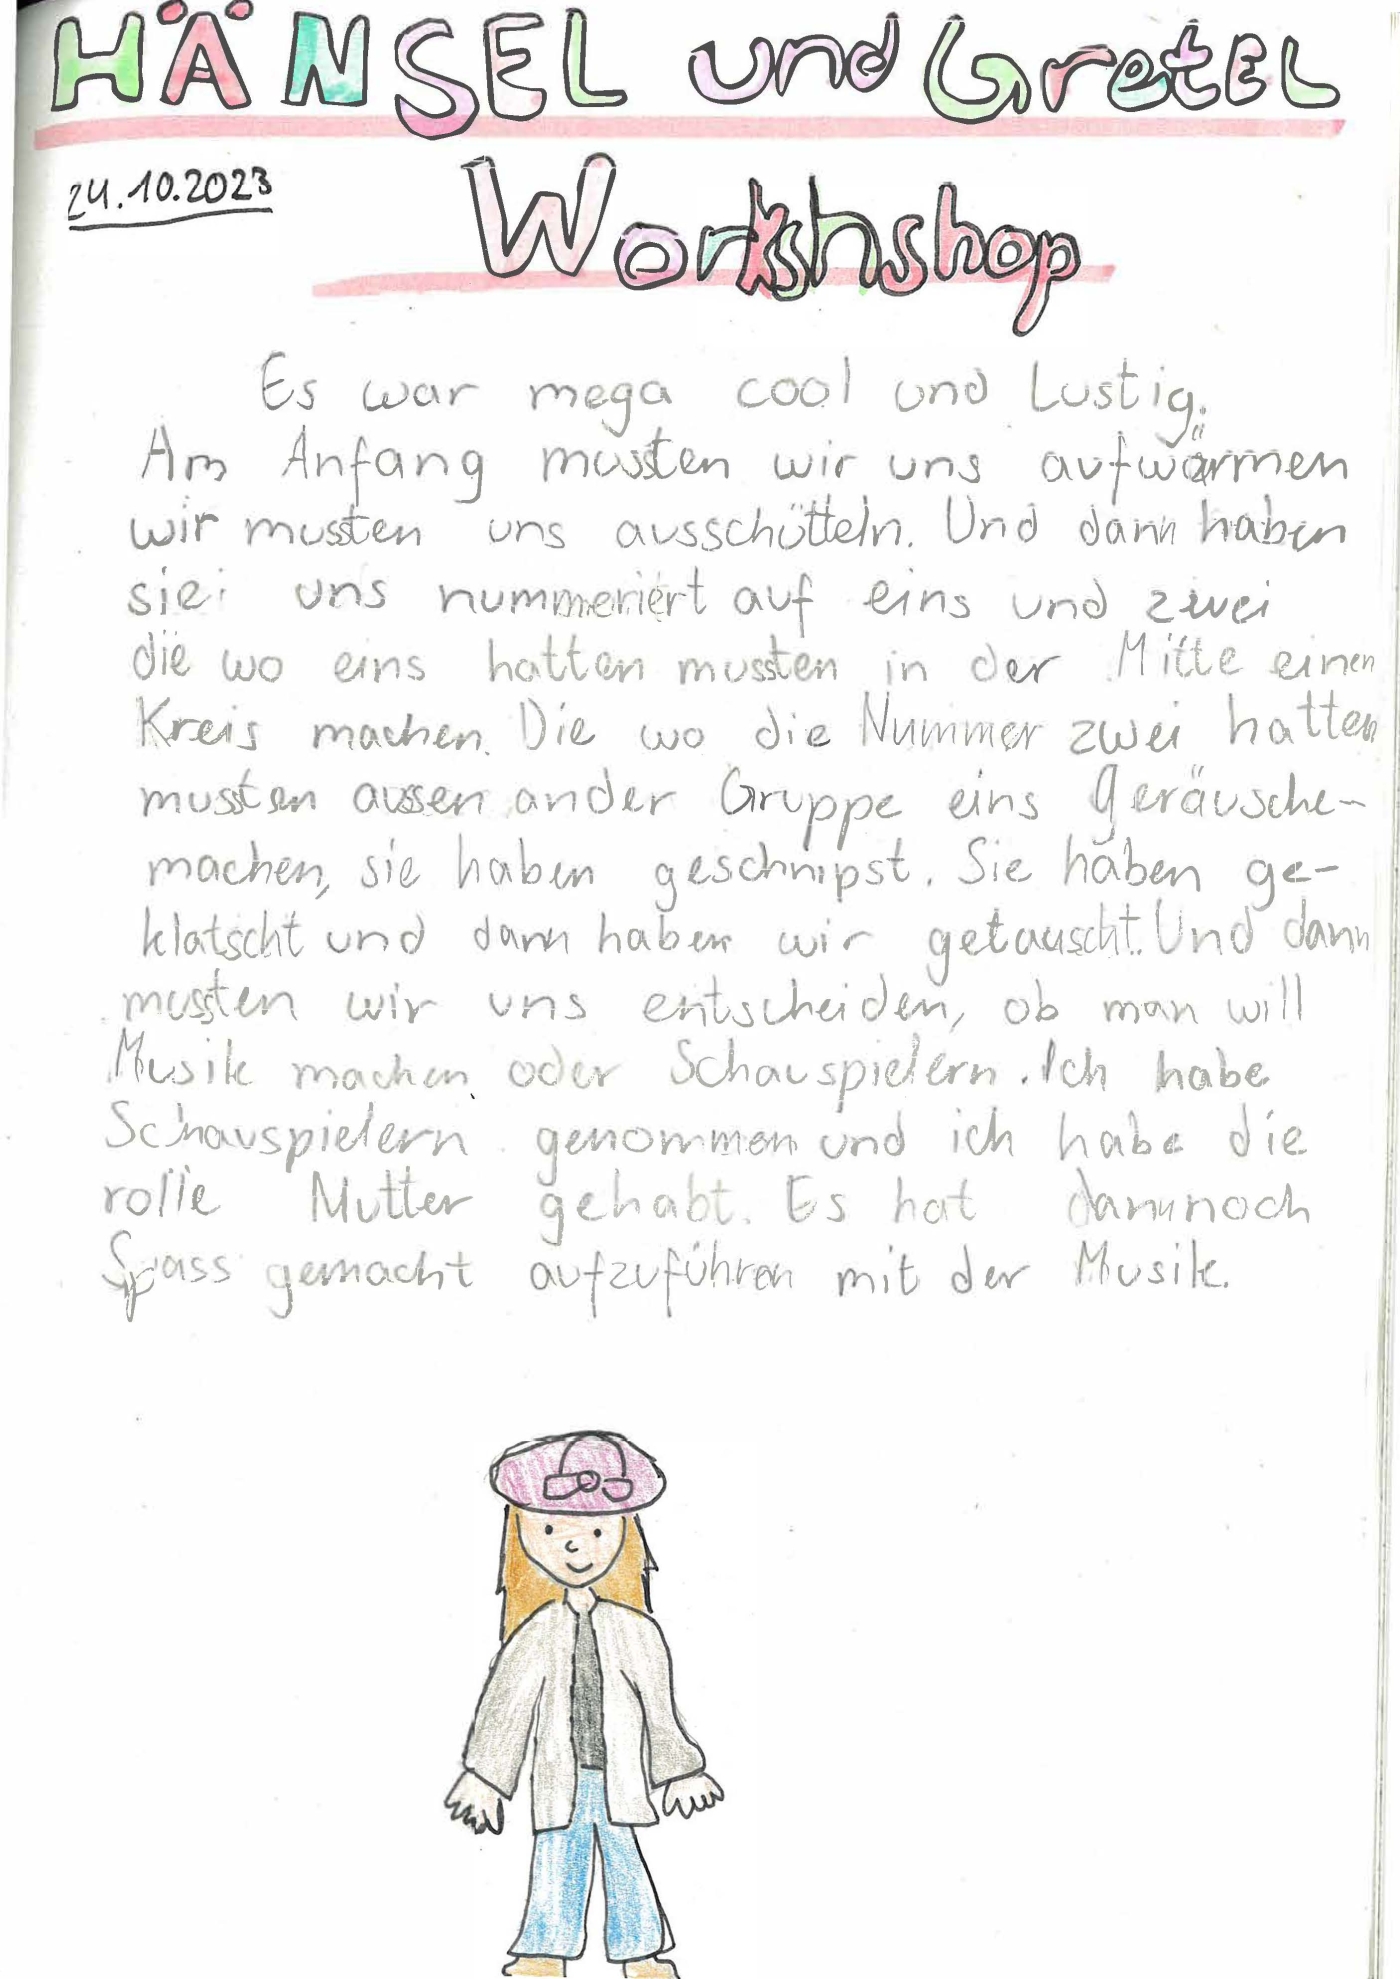 HÄNSEL und GretEL
24.10.2023
Workshshop
Es war mega cool und Lustig.
Am Anfang mussten wir uns aufwärmen
wir mussten uns ausschütteln. Und dann haben
sie uns nummeriert auf eins und zwei
die wo eins hatten mussten in der Mitte einen
Kreis machen. Die wo die Nummer zwei hatten
mussten aussen ander Gruppe eins Geräusche-
machen, sie haben geschnipst. Sie haben ge-
klatscht und dann haben wir getauscht. Und dann
mussten wir uns entscheiden, ob man will
Musik machen oder Schauspielern. Ich habe
Schauspielern genommen und ich habe die
rolle Mutter gehabt. Es hat dannnoch
Spass gemacht aufzuführen mit der Musik.